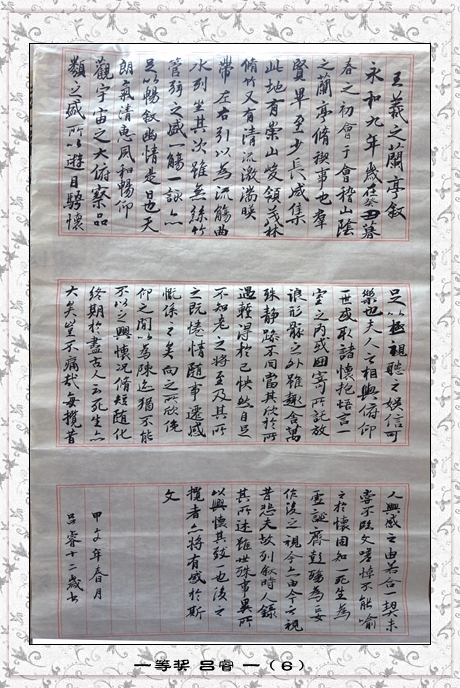 王羲之蘭亭敘
永和九年歲在癸丑暮
春之初會于會稽山陰
之蘭亭脩稧事也羣
賢畢至少長咸集
此地有崇山峻領茂林
脩竹又有清流激湍暎
帶左右引以為流觴曲
水列坐其次雖無絲竹
管弦之盛一觴一詠亦
足以暢敘幽情是日也天
朗氣清惠風和暢仰
觀宇宙之大俯察品
類之盛所以遊目騁懷
足以極視聽之娛信可
樂也夫人之相與俯仰
一世或取諸懷抱悟言一
室之內或因寄所託放
浪形骸之外雖趣舍萬
殊静躁不同當其欣於所
遇暫得於己快然自足
不知老之將至及其所
之既惓情隨事遷感
慨係之矣向之所欣俛
仰之間以為陳迹猶不能
不以之興懷況脩短隨化
終期於盡古人云死生亦
大矣豈不痛哉每攬昔
人興感之由若合一契未
嘗不臨文嗟悼不能喻
之於懷固知一死生為
虛誕齊彭殤為妄
作後之視今亦由今之視
昔悲夫故列敘時人錄
其所述雖世殊事異所
以興懷其致一也後之
攬者亦將有感於斯
文
甲午年春月
吕睿十二歲书
一等奖 吕睿 一（6）